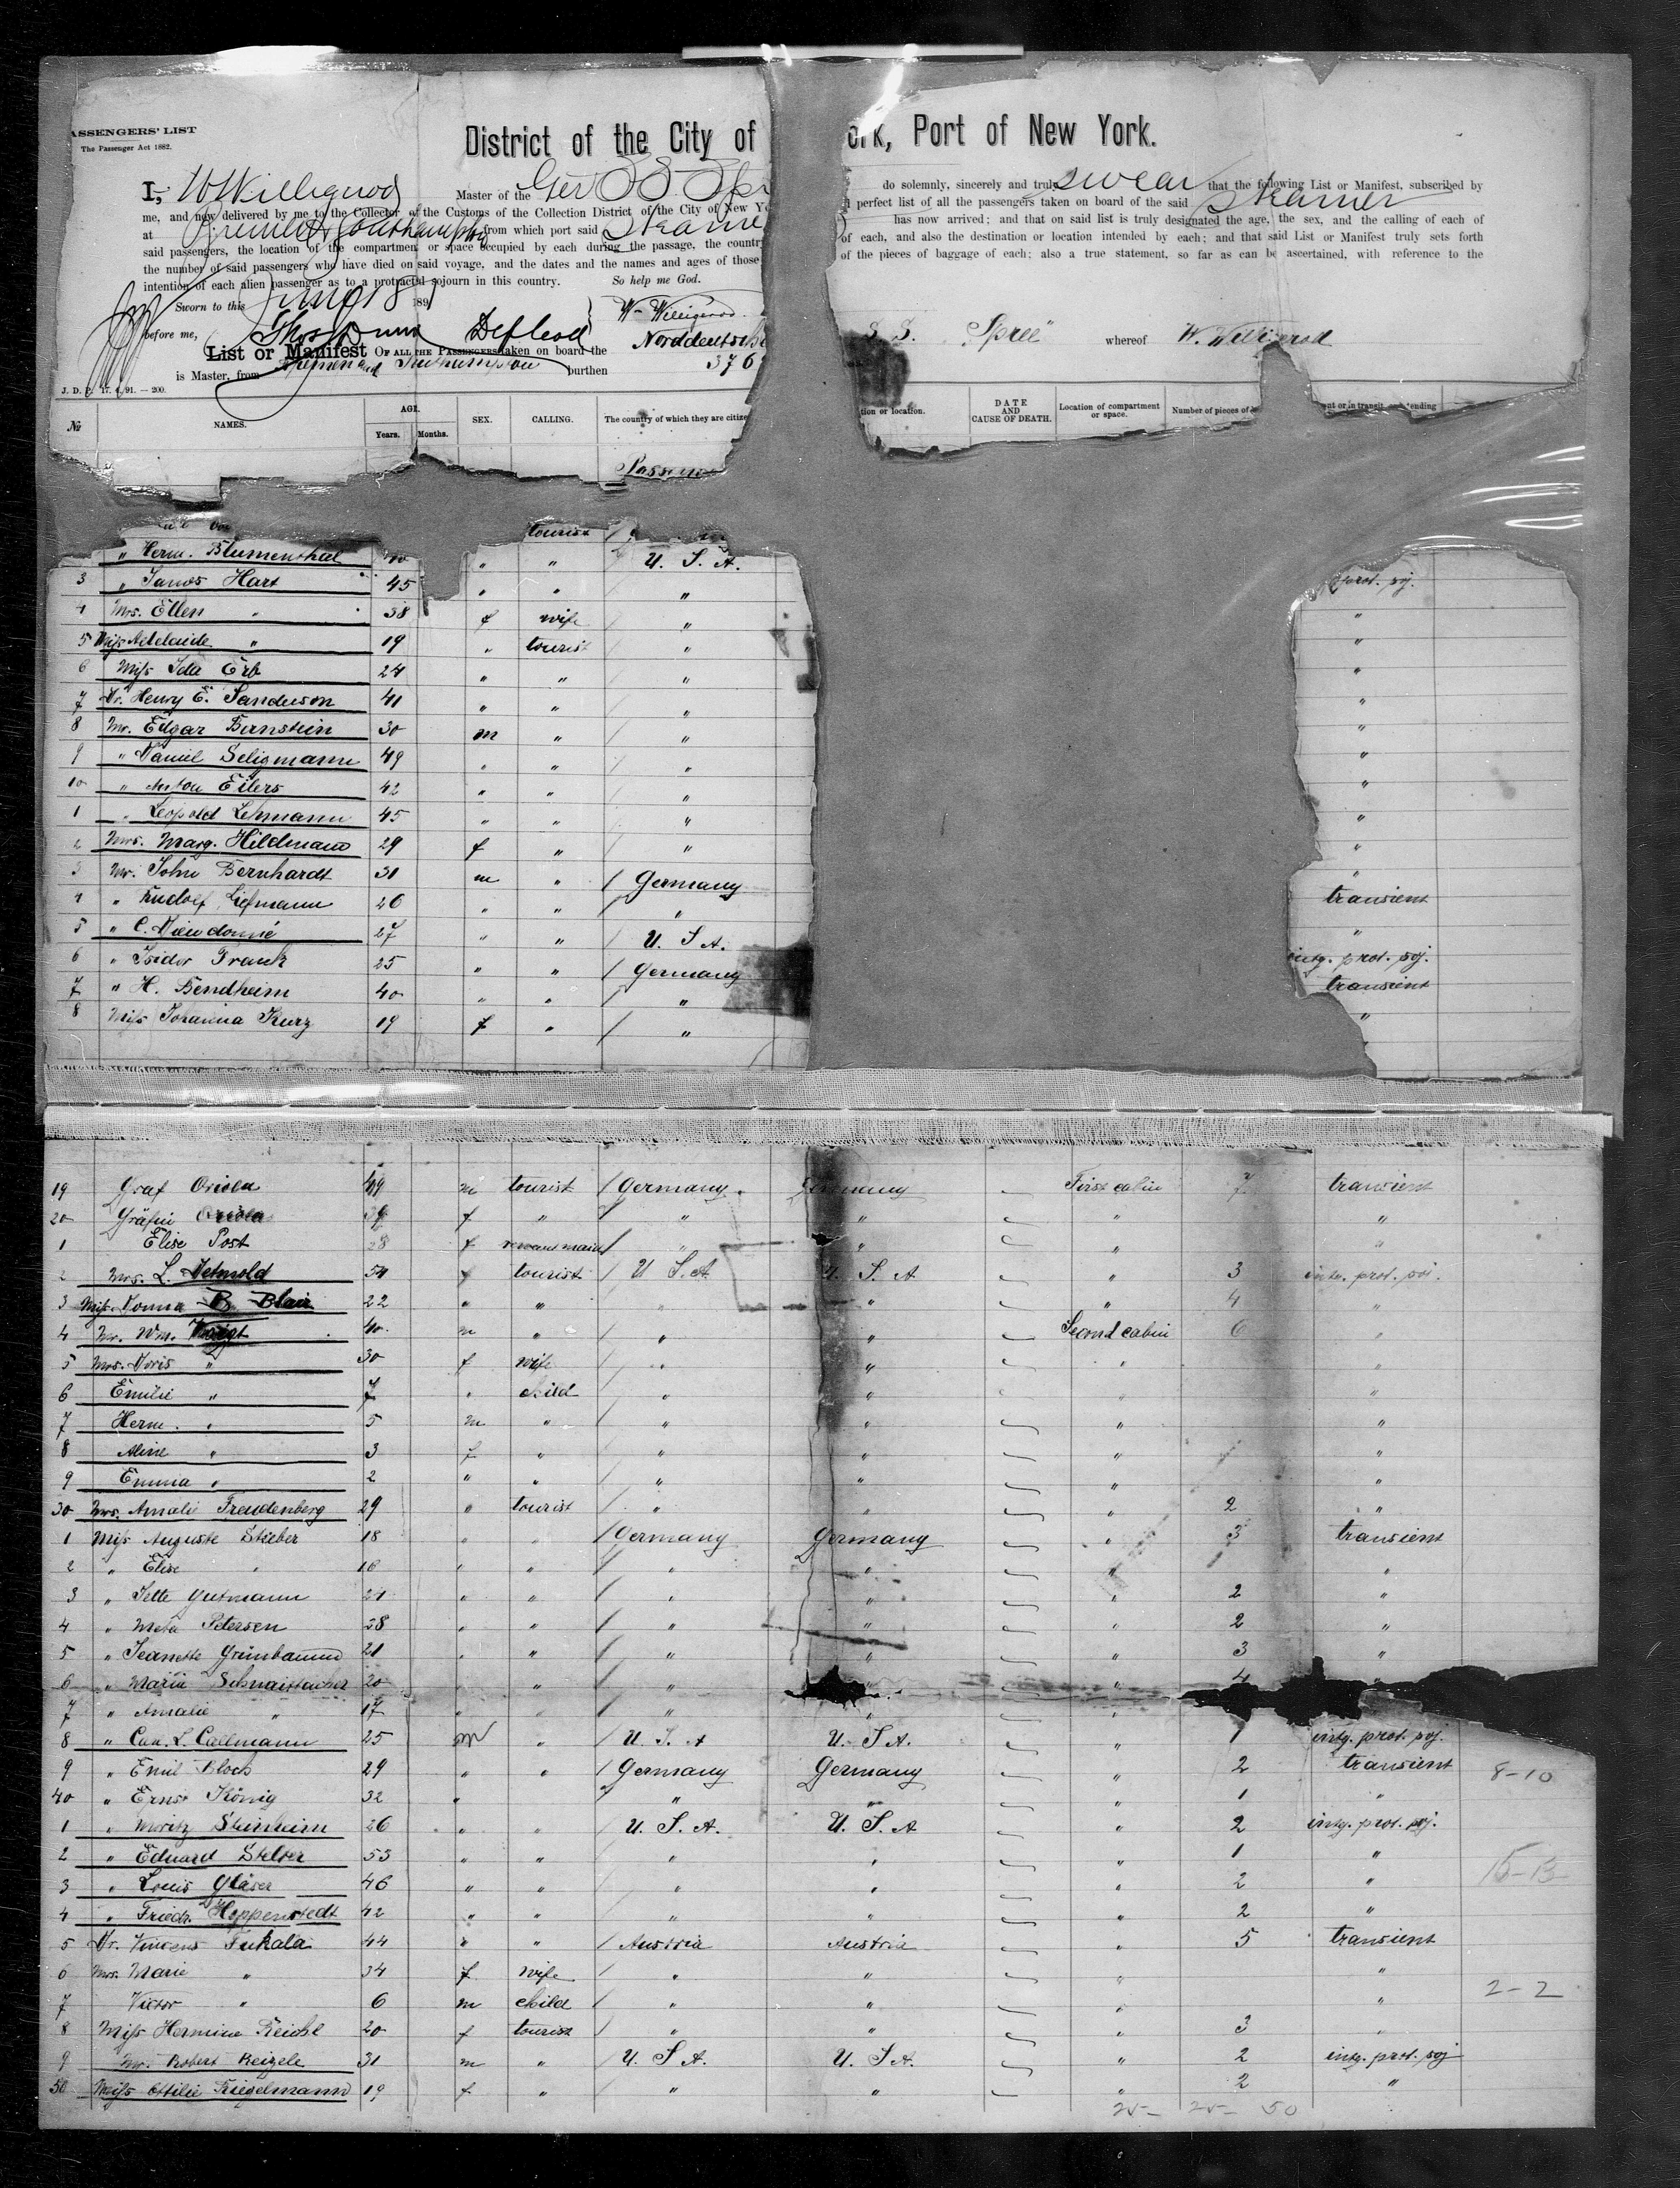 ASSENGERS' LIST
The Passenger Act 1882.
District of the City of ork, Port of New York.
I, W Willigerod Master of the Ger S.S. Spr do solemnly, sincerely and truly swear that the following List or Manifest, subscribed by
me, and now delivered by me to the Collector of the Customs of the Collection District of the City of New Yo perfect list of all the passengers taken on board of the said Steamer
at Bremen & Southampton from which port said Steame has now arrived; and that on said list is truly designated the age, the sex, and the calling of each of
said passengers, the location of the compartment or space occupied by each during the passage, the country of each, and also the destination or location intended by each; and that said List or Manifest truly sets forth
the number of said passengers who have died on said voyage, and the dates and the names and ages of those of the pieces of baggage of each; also a true statement, so far as can be ascertained, with reference to the
intention of each alien passenger as to a protracted sojourn in this country. So help me God.
Sworn to this 18 189
before me, Thos Dunn W. Willigerod
List or Manifest OF ALL THE PASSENGERS taken on board the Norddeutsche S. S. "Spree" whereof W. Willigerod
is Master, from Bremen and Southampton burthen 376
J. D. P. 17. 4. 91. — 200.
№ NAMES. AGE. Years. Months. SEX. CALLING. The country of which they are citize tion or location. DATE AND CAUSE OF DEATH. Location of compartment or space. Number of pieces of ent or in transit tending
tourist /
" Herm. Blumenthal 40 " " U. S. A.
3 " James Hart 45 " " " prot. soj.
4 Mrs. Ellen " 38 f wife / " "
5 Miss Adelaide " 19 " tourist / " "
6 Miss Ida Erb 24 " " / " "
7 Dr. Henry E. Sanderson 41 " " / " "
8 Mr. Edgar Bernstein 30 m " / " "
9 " Daniel Seligmann 49 " " / " "
10 " Anton Eilers 42 " " / " "
1 " Leopold Lehmann 45 " " / " "
2 Mrs. Marg. Hildmann 29 f " / " "
3 Mr. John Bernhardt 31 m " / Germany "
4 " Rudolf Liefmann 26 " " / " transient
5 " C. Dieudonné 27 " " / U. S. A. "
6 " Isidor Frank 25 " " / Germany intg. prot. soj.
7 " H. Bendheim 40 " " / " transient
8 Miss Johanna Kurz 19 f " / " "
19 Graf Oriola 49 m tourist / Germany Germany First cabin 7 transient
20 Gräfin Oriola 39 f " / " " " "
1 Elise Post 28 f servant maid / " " " "
2 Mrs. L. Detmold 54 f tourist / U S. A. U. S. A " 3 intg. prot. soj.
3 Miss Donna B Blair 22 " " / " " " 4 "
4 Mr. Wm. Voigt 40 m " / " " Second cabin 6 "
5 Mrs. Doris " 30 f wife / " " " "
6 Emilie " 7 " child / " " " "
7 Herm. " 5 m " / " " " "
8 Aline " 3 f " / " " " "
9 Emma " 2 " " / " " " "
30 Mrs. Amalie Freudenberg 29 " tourist / " " " 2 "
1 Miss Auguste Stieber 18 " " / Germany Germany " 3 transient
2 " Elise " 16 " " / " " " 1 "
3 " Jette Gutmann 21 " " / " " " 2 "
4 " Meta Petersen 28 " " / " " " 2 "
5 " Jeanette Grünbaum 21 " " / " " " 3 "
6 " Maria Schnaittacher 20 " " / " " " 4 "
7 " Amalie " 17 " " / " " "
8 " L. Callmann 25 m " / U. S. A U. S A. " 1 intg. prot. soj.
9 " Emil Bloch 29 " " / Germany Germany " 2 transient 8-10
40 " Ernst König 32 " " " " 1 "
1 " Moritz Steinheim 26 " " U. S. A. U. S. A " 2 intg. prot. soj.
2 " Eduard Stelzer 53 " " " " " 1 "
3 " Louis Gläser 46 " " " " " 2 " 15-13
4 " Friedr. Hoppenstedt 42 " " " " " 2 "
5 Dr. Vincenz Fukala 44 " " / Austria Austria " 5 transient
6 Mrs. Marie " 34 f wife / " " " "
7 Victor " 6 m child / " " " " 2-2
8 Miss Hermine Reichl 20 f tourist / " " " 3 "
9 Mr. Robert Reizele 31 m " U. S A. U. S A. " 2 intg. prot. soj
50 Miss Ottilie Riegelmann 19 f " " " " 2 "
25- 25- 50